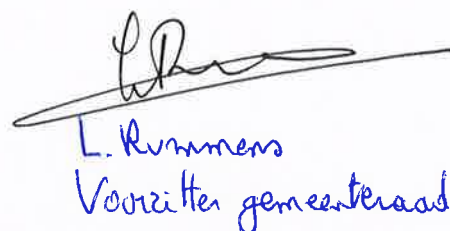 L. Rummens
Voorzitter gemeenteraad